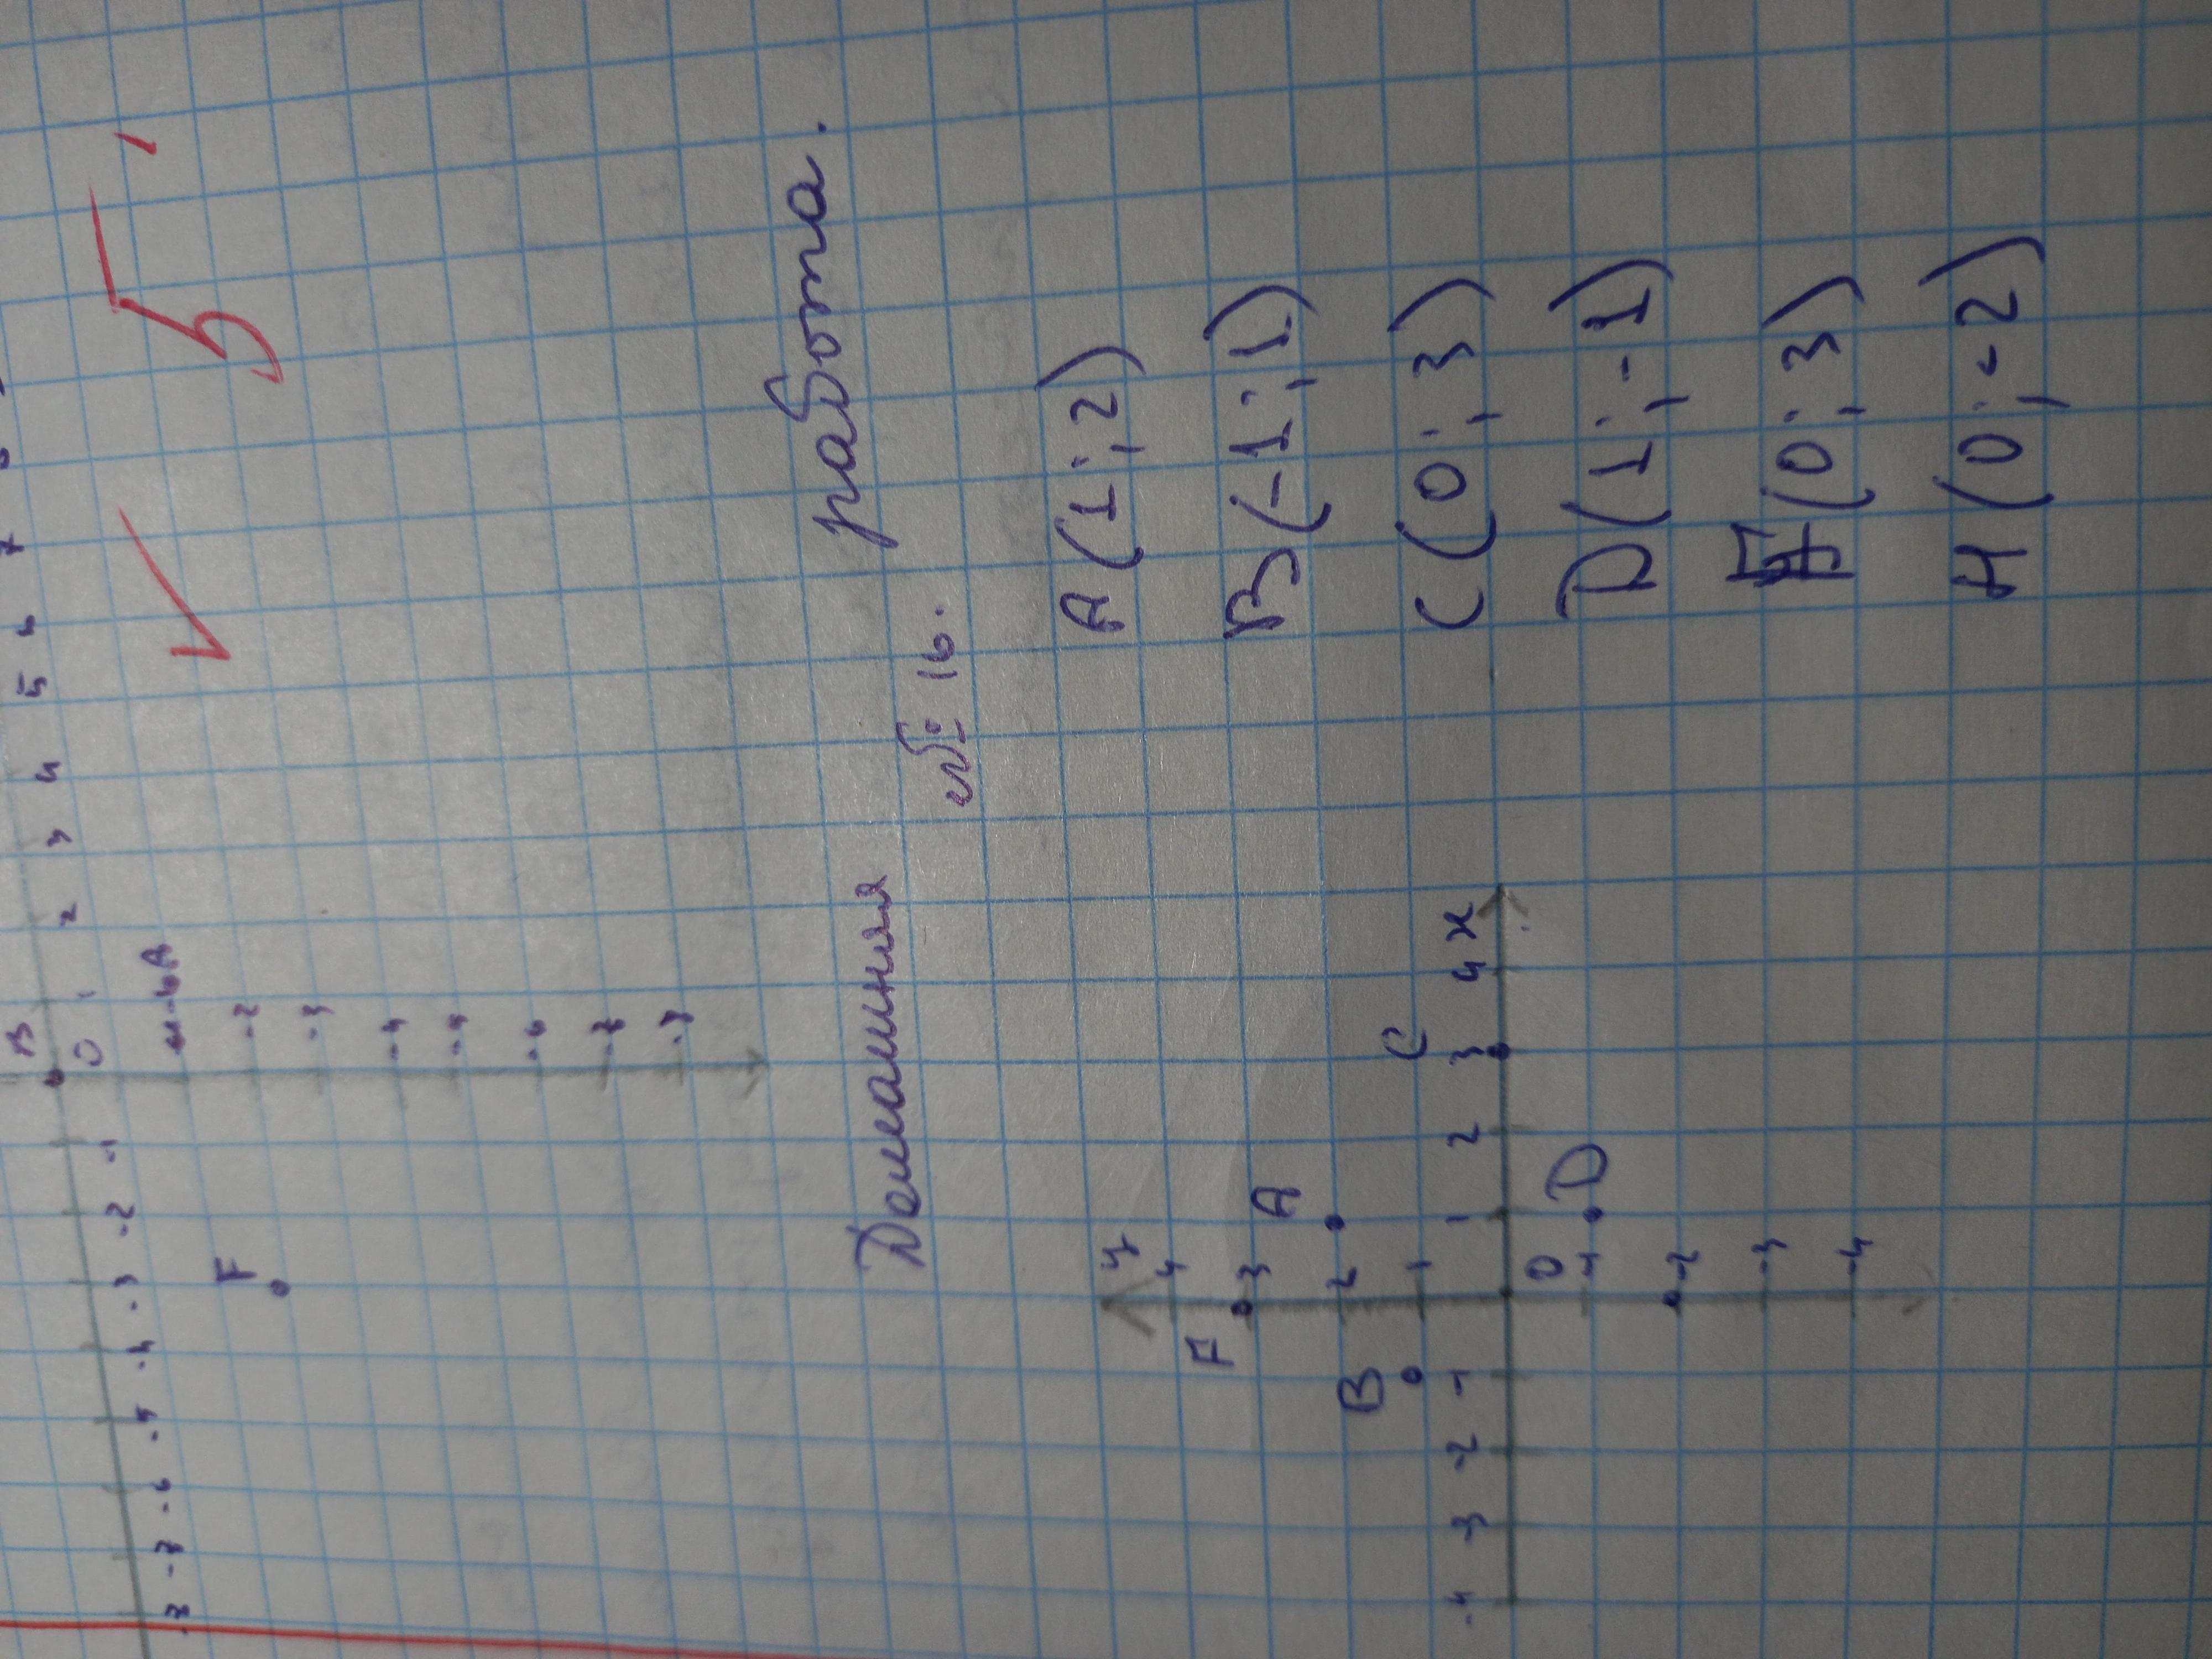 7 6 5 4 3 2 1
B
0
-1 A
-2
-3
-4
-6
-7
-8
-1 -2 -3 -4 -5 -6 -7 -8
F
5
Домашняя работа.
№ 16.
A (1; 2)
B (-1; 1)
C (0; 3)
D (1; -1)
F (0; 3)
H (0; -2)
y
4
F 3 A
2
B 1 C
-4 -3 -2 -1 1 2 3 4 x
0
-1 D
-2
-3
-4